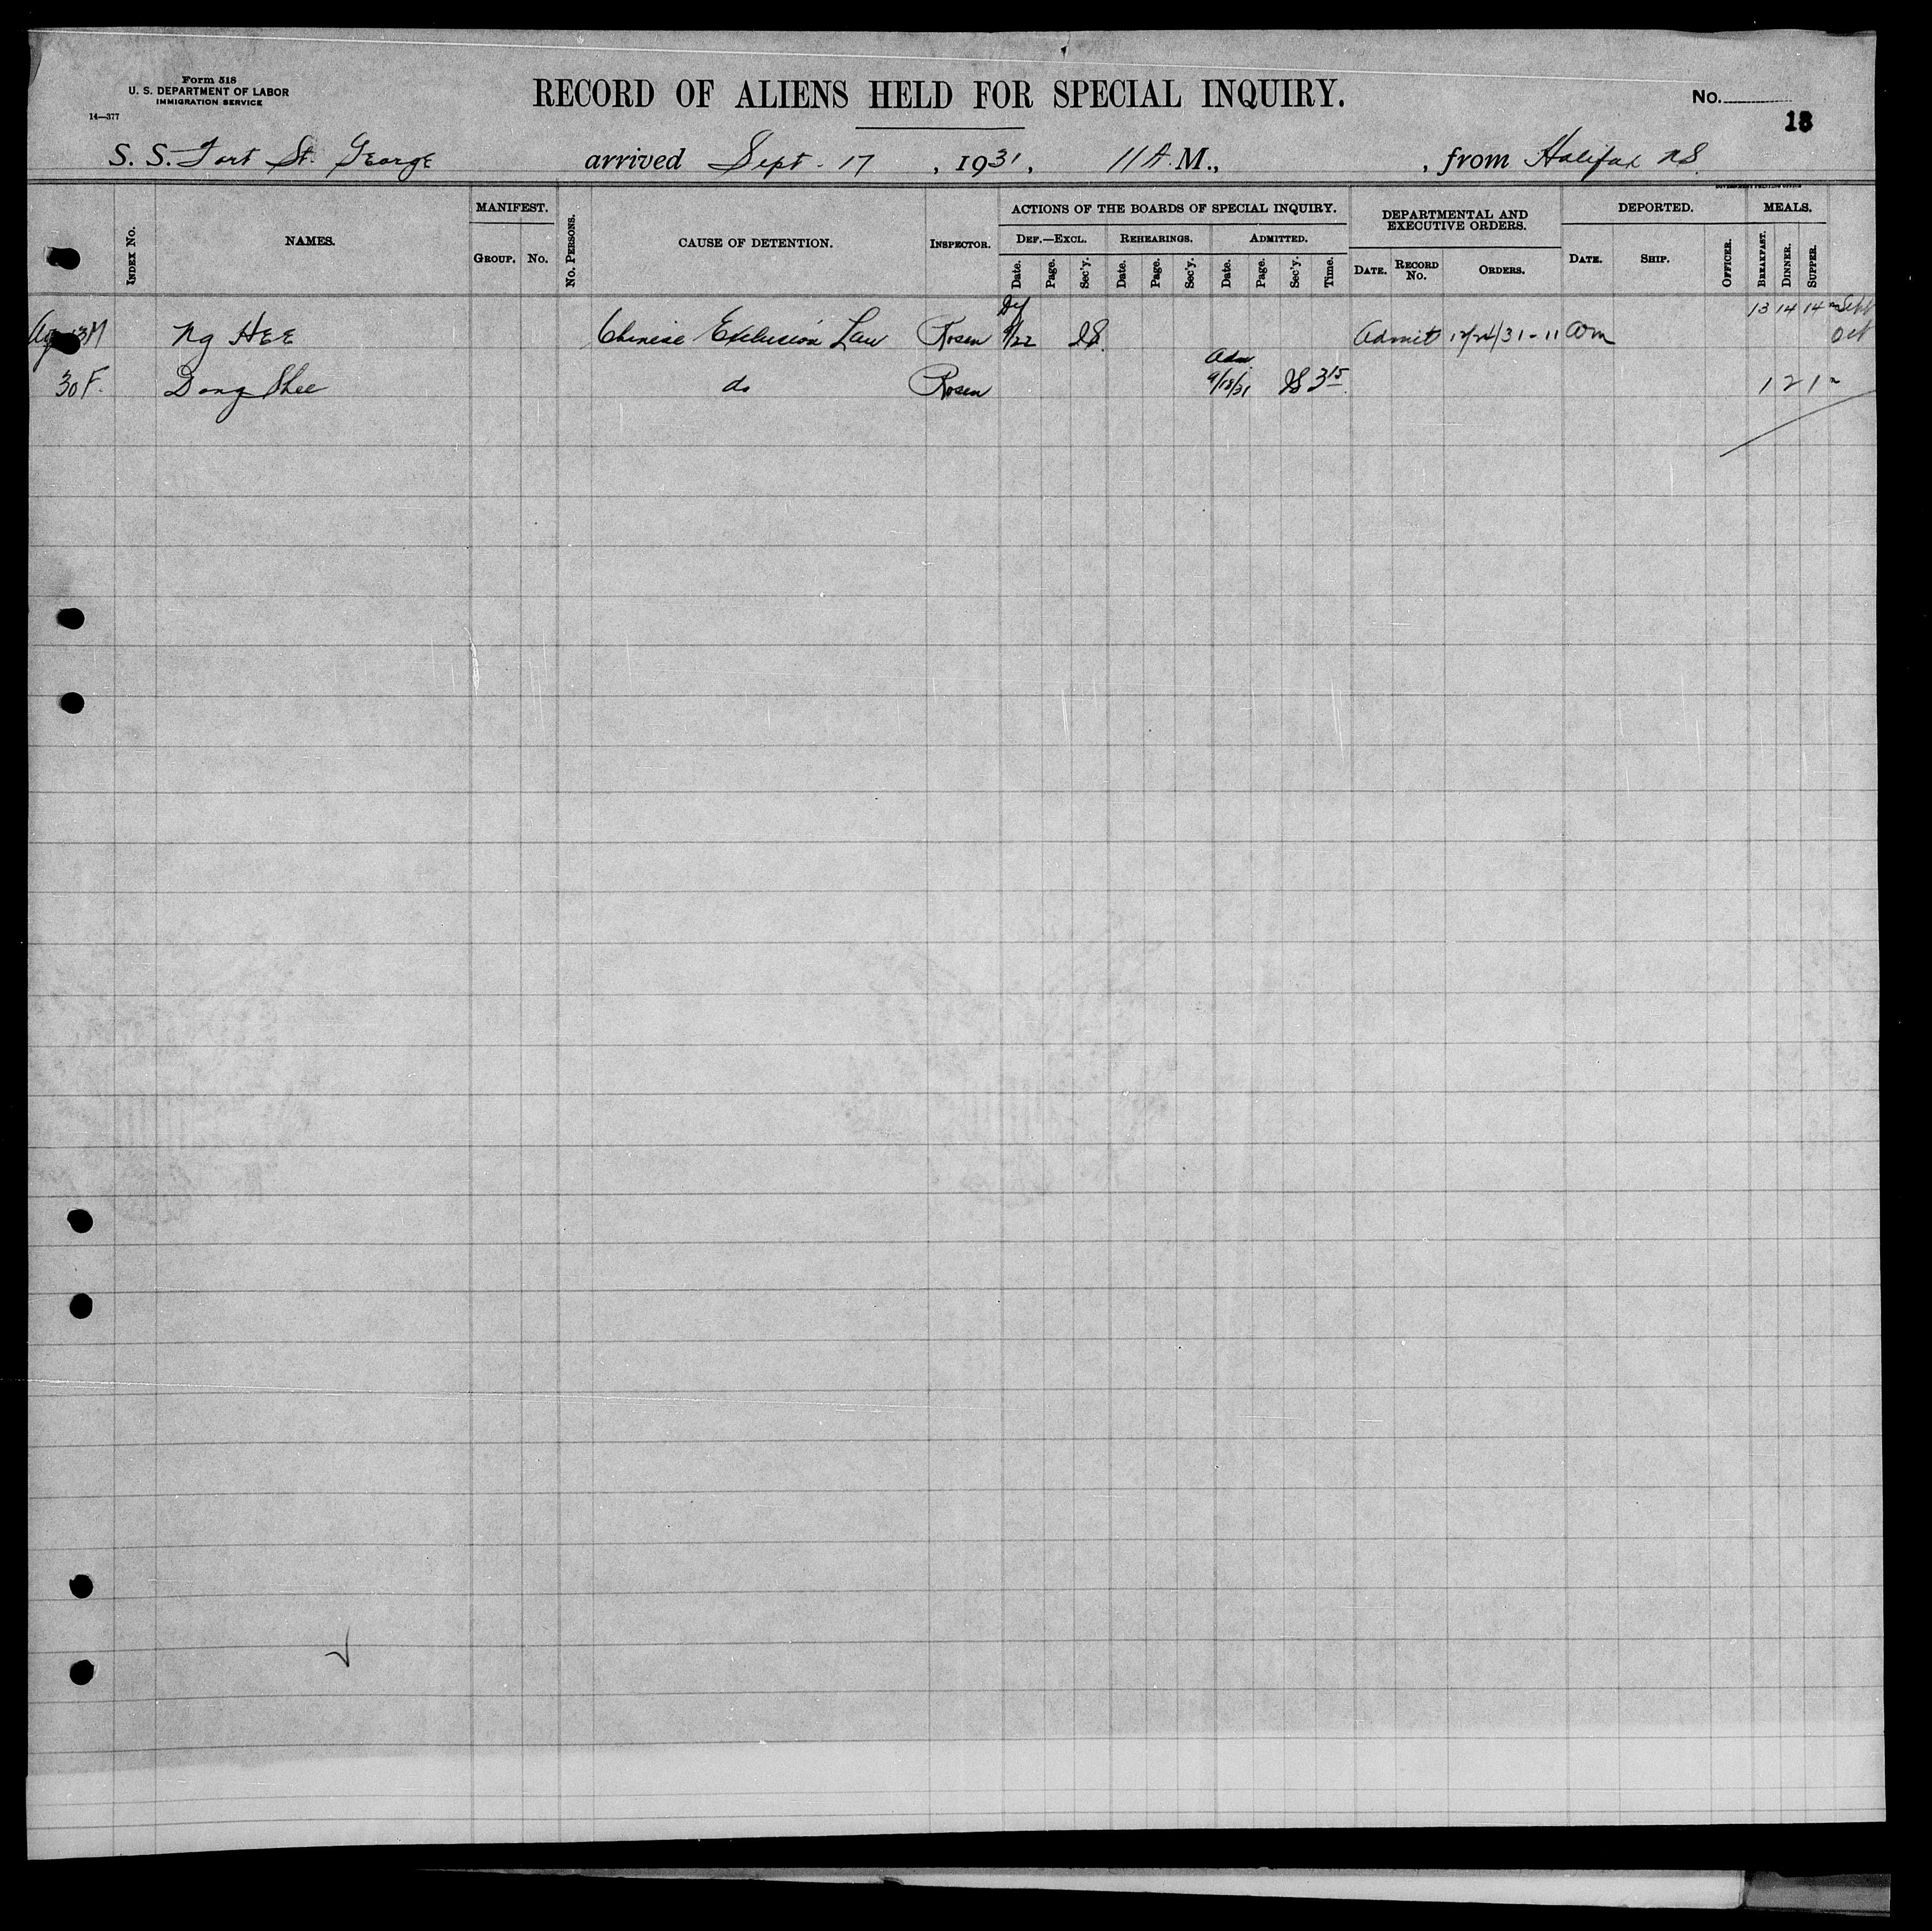 Form 518
U. S. DEPARTMENT OF LABOR
IMMIGRATION SERVICE
14—377
RECORD OF ALIENS HELD FOR SPECIAL INQUIRY.
No.
18
S. S. Fort St. George arrived Sept. 17, 1931, 11 A. M., , from Halifax NS.
GOVERNMENT PRINTING OFFICE
INDEX No.
NAMES.
MANIFEST.
GROUP. No.
No. PERSONS.
CAUSE OF DETENTION.
INSPECTOR.
ACTIONS OF THE BOARDS OF SPECIAL INQUIRY.
DEF.—EXCL. REHEARINGS. ADMITTED.
Date. Page. Sec'y. Date. Page. Sec'y. Date. Page. Sec'y. Time.
DEPARTMENTAL AND
EXECUTIVE ORDERS.
DATE. RECORD No. ORDERS.
DEPORTED.
DATE. SHIP. OFFICER.
MEALS.
BREAKFAST. DINNER. SUPPER.
Def 13 14 14 Sept
13 M Ng HEE Chinese Exclusion Law Rosen 9/22 Admit 12/24/31 - 11 am Oct
Adm
30 F. Dong Shee do Rosen 9/18/31 3 15 1 2 1